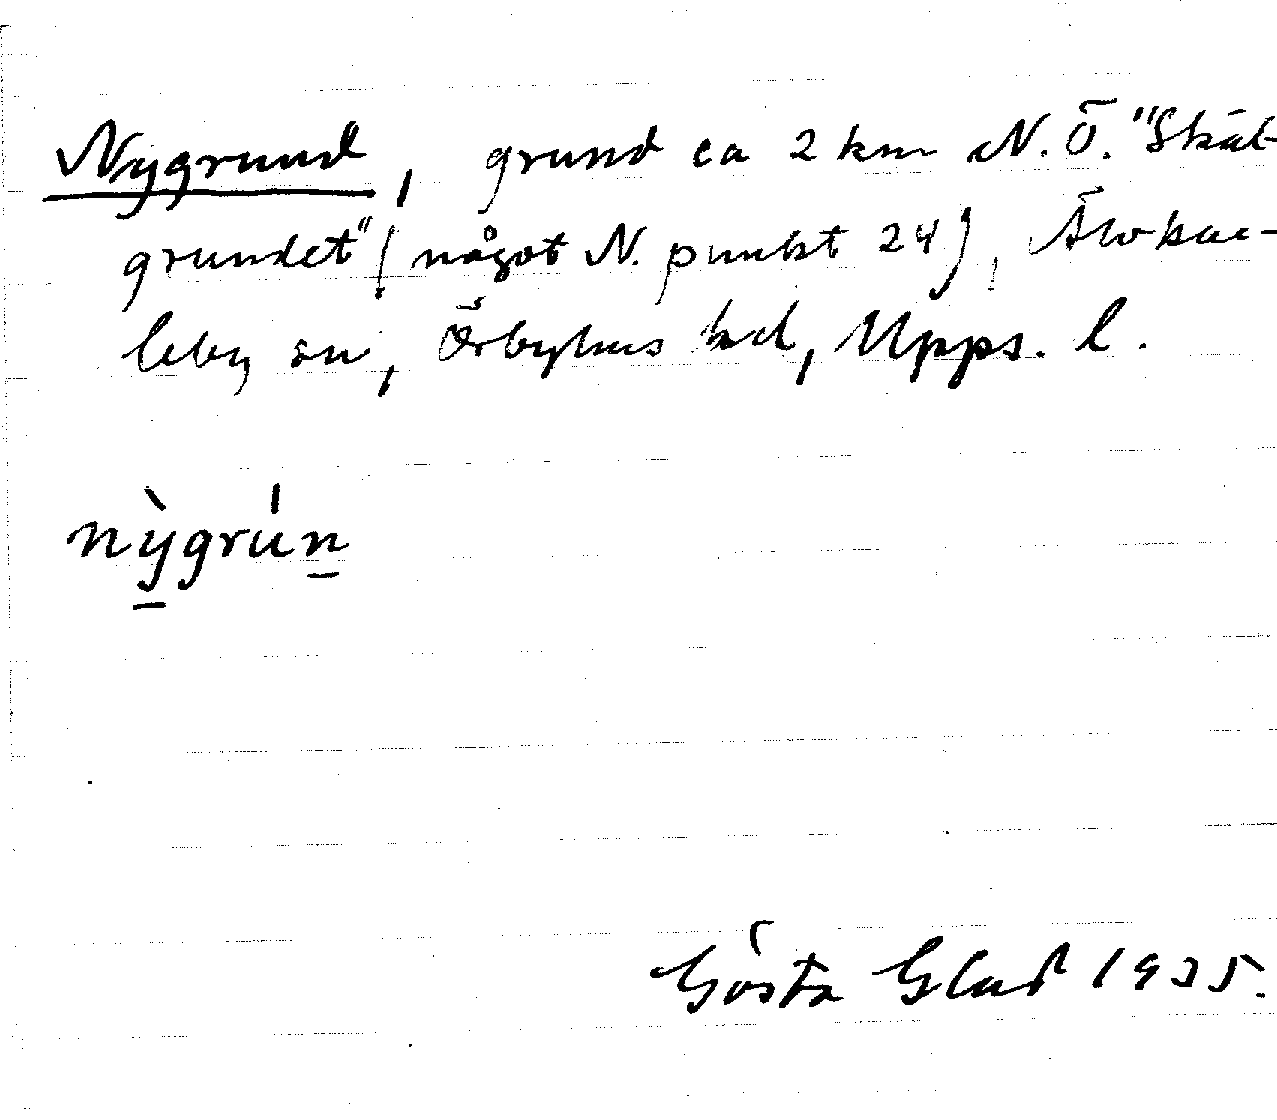 Nygrund, grund ca 2 km N.Ö. "Skät-
grundet" (något N. punkt 24), Älvkar-
leby sn, Örbyhus hd, Upps. l.
nỳgrún
Gösta Glad 1935.